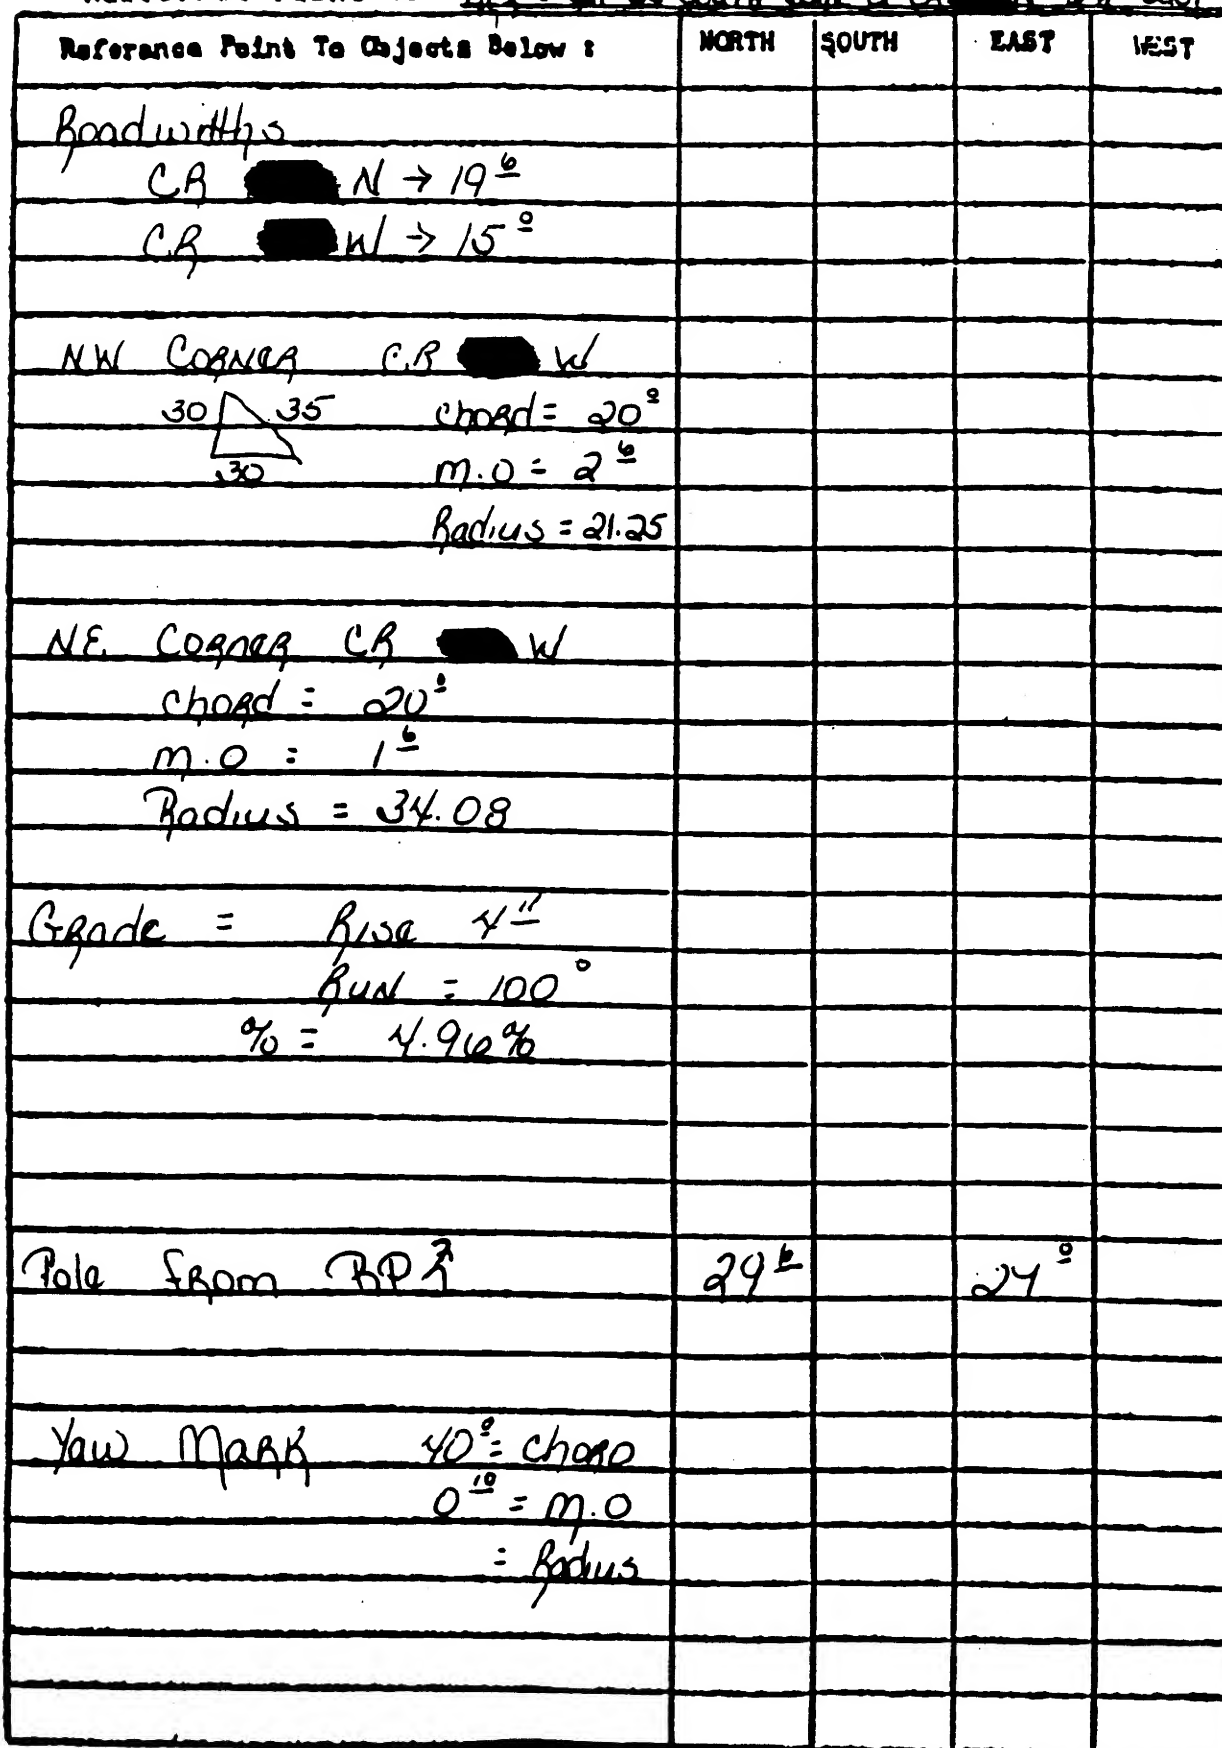 Reference Point To Objects Below : NORTH SOUTH EAST WEST
Roadwidths
CR N → 19 6
CR W → 15 0
NW CORNER CR W
30 35 chord = 20 0
30 m.o = 2 6
Radius = 21.25
NE CORNER CR W
chord = 20 0
m.o = 1 6
Radius = 34.08
Grade = Rise 4 11
RUN = 100 0
% = 4.96%
Pole from RP 2 29 6 24 0
Yaw MARK 40 0 = chord
0 10 = m.o
= Radius